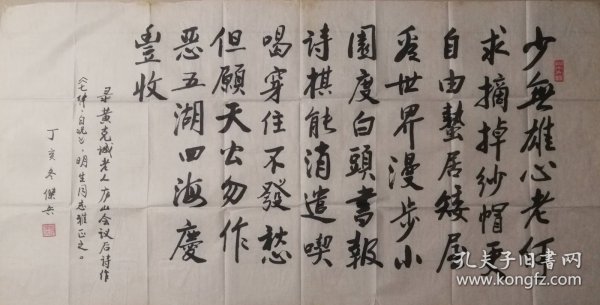 少無雄心老何
求摘掉紗帽更
自由蟄居矮屋
看世界漫步小
園度白頭書報
詩棋能消遣喫
喝穿住不發愁
但願天公勿作
惡五湖四海慶
豐收
录黄克诚老人庐山会议后诗作
《七律·自况》,明生同志雅正之。
丁亥冬 傑兵
孔夫子旧书网